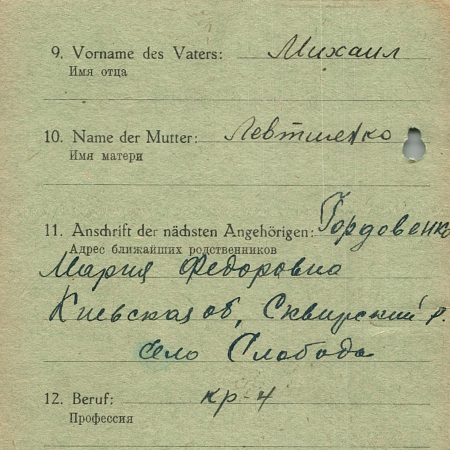 9. Vorname des Vaters: Михаил
Имя отца
10. Name der Mutter: Левтшенко
Имя матери
11. Anschrift der nächsten Angehörigen: Гордовенко
Адрес ближайших родственников
Мария Федоровна
Киевская об, Сквирский р.
село Слобода
12. Beruf: кр-н
Профессия